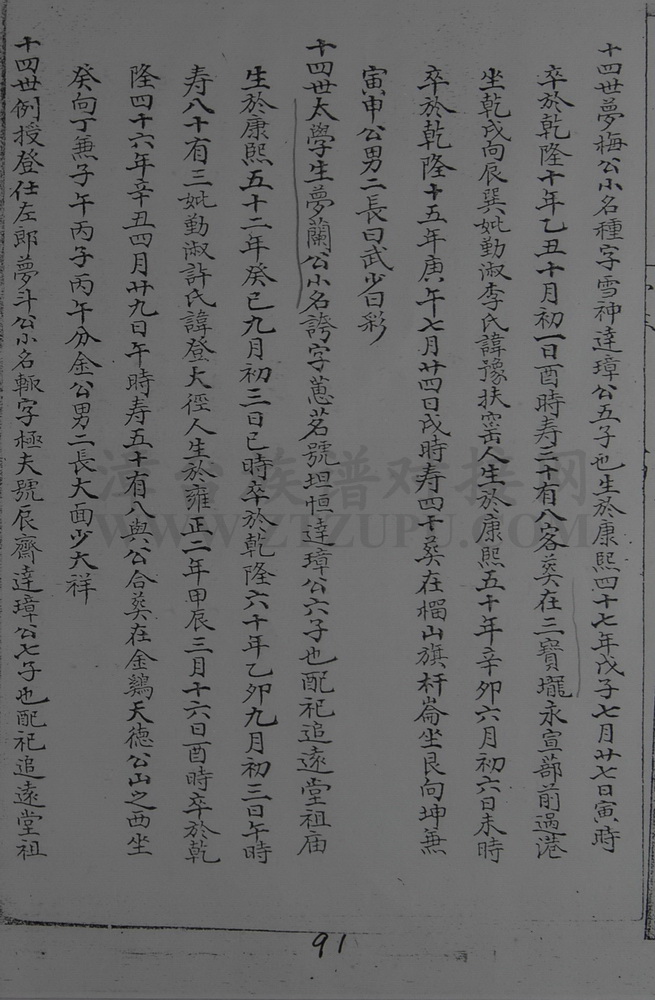 十四世夢梅公小名種字雪神達璋公五子也生於康熙四十七年戊子七月廿七日寅時
卒於乾隆十年乙丑十月初一日酉時寿三十有八客葬在三寶壠永宣蔀前過港
坐乾戌向辰巽妣勤淑李氏諱豫扶窑人生於康熙五十年辛卯六月初六日未時
卒於乾隆十五年庚午七月廿四日戌時寿四十葬在榴山旗杆崙坐艮向坤兼
寅申公男二長曰武少曰彩
十四世太學生夢蘭公小名誇字蕙茗號坦恒達璋公六子也配祀追遠堂祖庙
生於康熙五十二年癸巳九月初三日巳時卒於乾隆六十年乙卯九月初三日午時
寿八十有三妣勤淑許氏諱登大徑人生於雍正二年甲辰三月十六日酉時卒於乾
隆四十六年辛丑四月廿九日午時寿五十有八與公合葬在金鷄天德公山之西坐
癸向丁兼子午丙子丙午分金公男二長大面少大祥
十四世例授登仕左郎夢斗公小名輙字極夫號辰齋達璋公七子也配祀追遠堂祖
91
漳台族谱对接网
WWW.ZTZUPU.COM